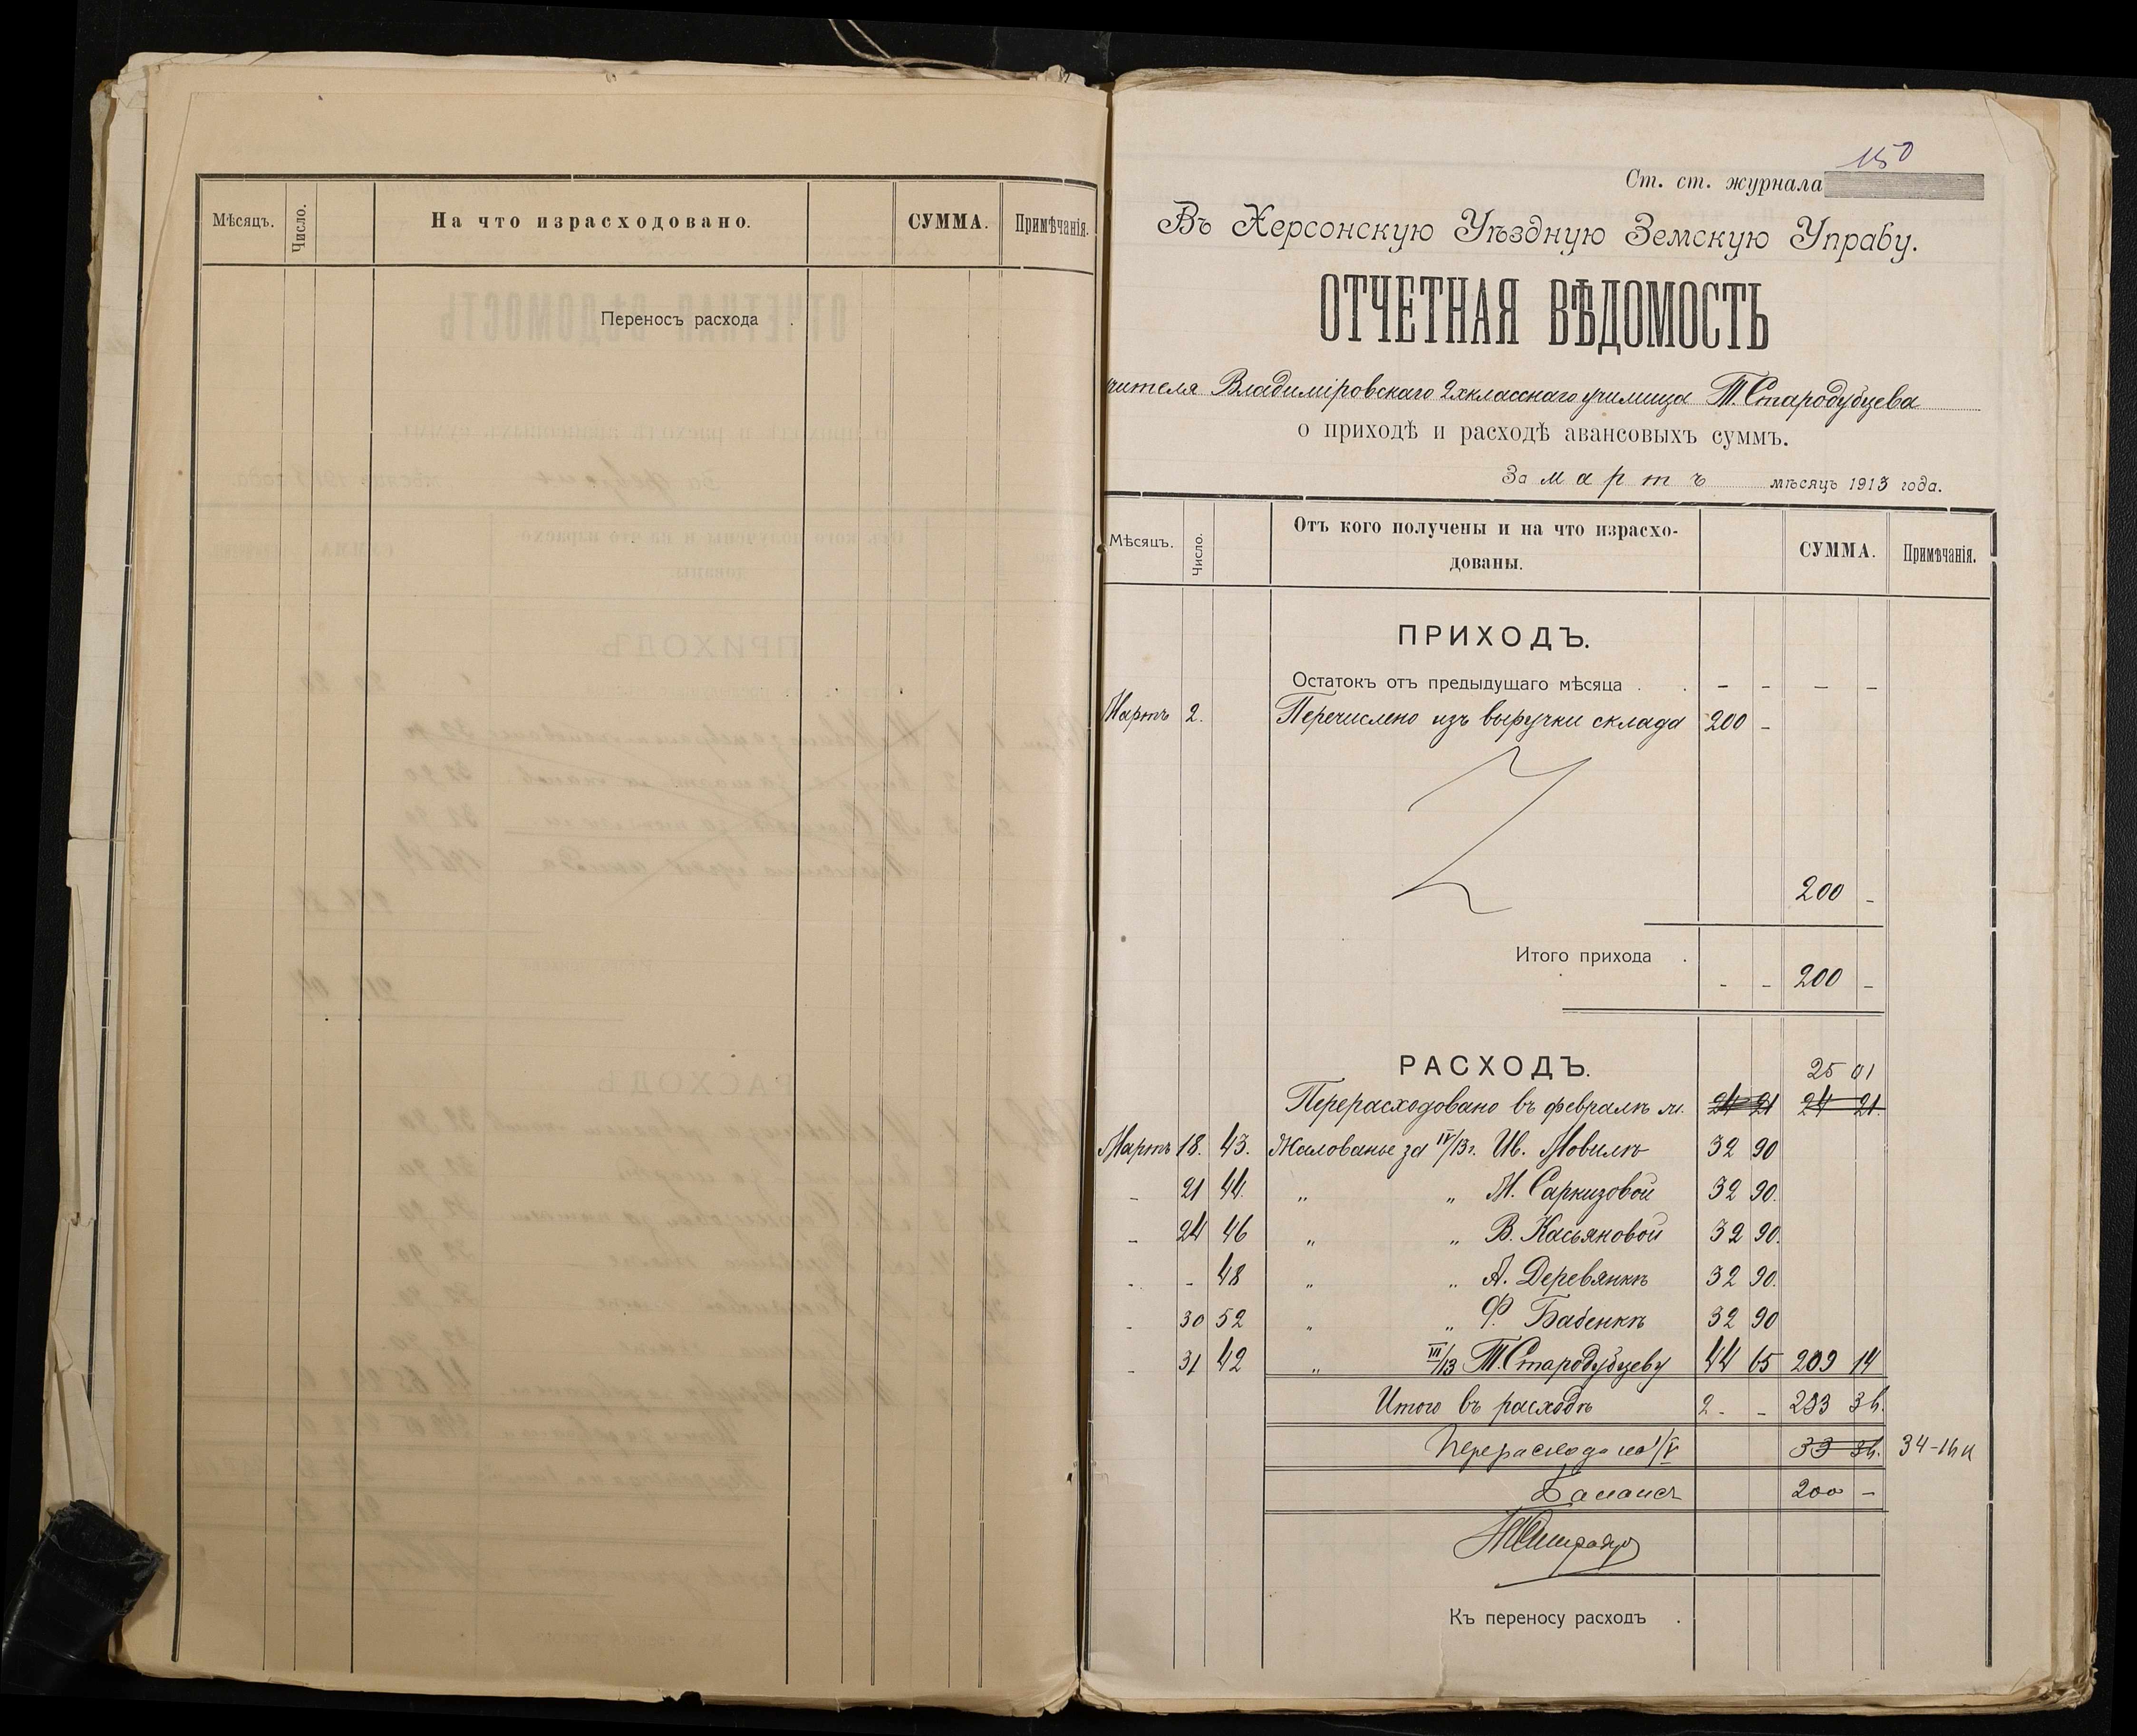 Мѣсяцъ. Число. На что израсходовано. СУММА. Примѣчанія.
Переносъ расхода .
150
Ст. ст. журнала
Въ Херсонскую Уѣздную Земскую Управу.
ОТЧЕТНАЯ ВѢДОМОСТЬ
чителя Владиміровскаго 2хкласснаго училища Т. Стародубцева
о приходѣ и расходѣ авансовыхъ суммъ.
За мартъ мѣсяцъ 1913 года.
Мѣсяцъ. Число. Отъ кого получены и на что израсхо-
дованы. СУММА. Примѣчанія.
ПРИХОДЪ.
Остатокъ отъ предыдущаго мѣсяца . . - - - -
Мартъ 2. Перечислено изъ выручки склада 200 -
200 -
Итого прихода .
- - 200 -
РАСХОДЪ.
25 01
Перерасходовано въ февралѣ м. 24 21 24 21.
Мартъ 18. 43. Жалованье за IV/13г. Ив. Мовилѣ 32 90
- 21 44. " " М. Саркизовой 32 90.
- 24 46 " " В. Касьяновой 32 90.
- - 48 " " А. Деревянкѣ 32 90.
- 30 52 " " Ф. Бабенкѣ 32 90
- 31 42 " III/13 Т. Стародубцеву 44 65 209 14
Итого въ расходѣ 2 - - 233 36.
Перерасхода на 1/V 33 36. 34-16 к
Балансъ 200 -
Къ переносу расходъ .